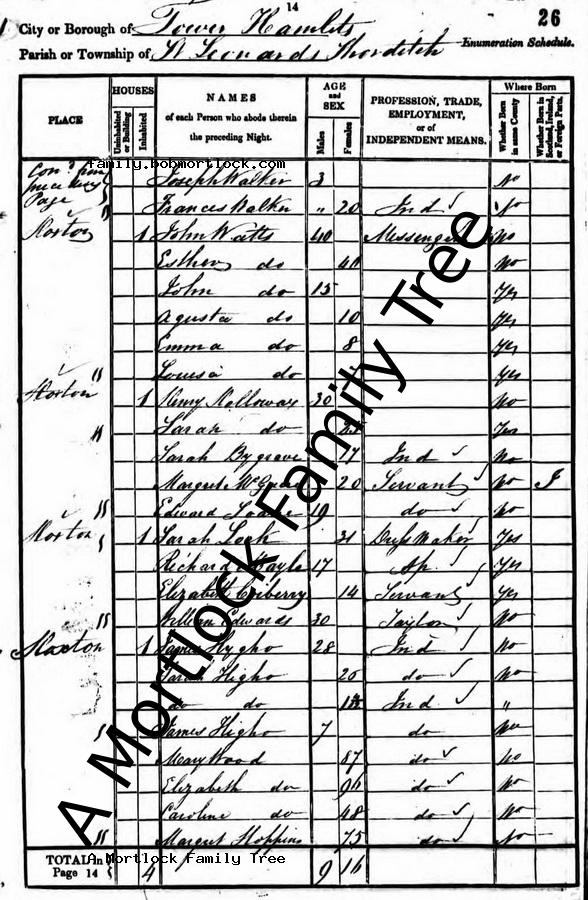 14
26
City or Borough of Tower Hamlets
Parish or Township of St Leonards Shorditch Enumeration Schedule.
PLACE
HOUSES
Uninhabited or Building
Inhabited
NAMES
of each Person who abode therein
the preceding Night.
AGE and SEX
Males
Females
PROFESSION, TRADE,
EMPLOYMENT,
or of
INDEPENDENT MEANS.
Where Born
Whether Born in same County
Whether Born in Scotland, Ireland, or Foreign Parts.
family.bobmortlock.com
Page
Joseph Walker 3 No
Frances Walker " 20 Ind No
Hoxton 1 John Watts 40 Messenger No
Esther do 40 No
John do 15 Yes
Agusta do 10 Yes
Emma do 8 Yes
Louisa do Yes
Hoxton 1 Henry Holloway 30 No
Sarah do Yes
Sarah Bygrave 17 Ind No
Margret 20 Servant No I
Edward 19 do No
Hoxton 1 Sarah Lock 31 Dress Maker Yes
Richard 17 Ap. Yes
Elizabeth 14 Servant Yes
William Edwards 30 Taylor No
Hoxton 1 James Hygho 28 Ind No
Sarah Higho do No
do do Ind "
James Higho 7 do No
Mary Wood do No
Elizabeth do do No
Caroline do 48 do No
Margret Hoppins 75 do No
TOTAL in
Page 14 4 9 16
A Mortlock Family Tree
A Mortlock Family Tree